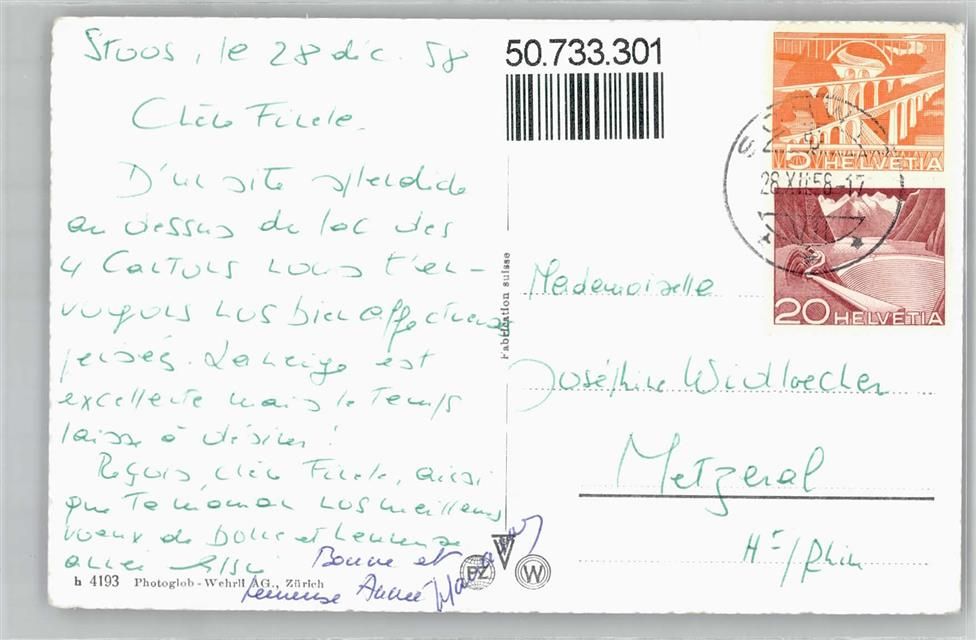 Stoos, le 28 déc. 58
50.733.301
Chère Finele.
D'un site splendide
au dessus du lac des
4 Cantons nous t'en-
voyons nos bien affectueuses
pensées. La neige est
excellente mais le temps
laisse à désirer !
Reçois, chère Finele, ainsi
que ta maman nos meilleurs
voeux de bonne et heureuse
année
Bonne et
heureuse Année
h 4193 Photoglob-Wehrli AG., Zürich
Fabrication suisse
PZ
W
5 HELVETIA
28.XII.58-17
20 HELVETIA
Mademoiselle
Joséphine Widloecher
Metzeral
Ht/Rhin